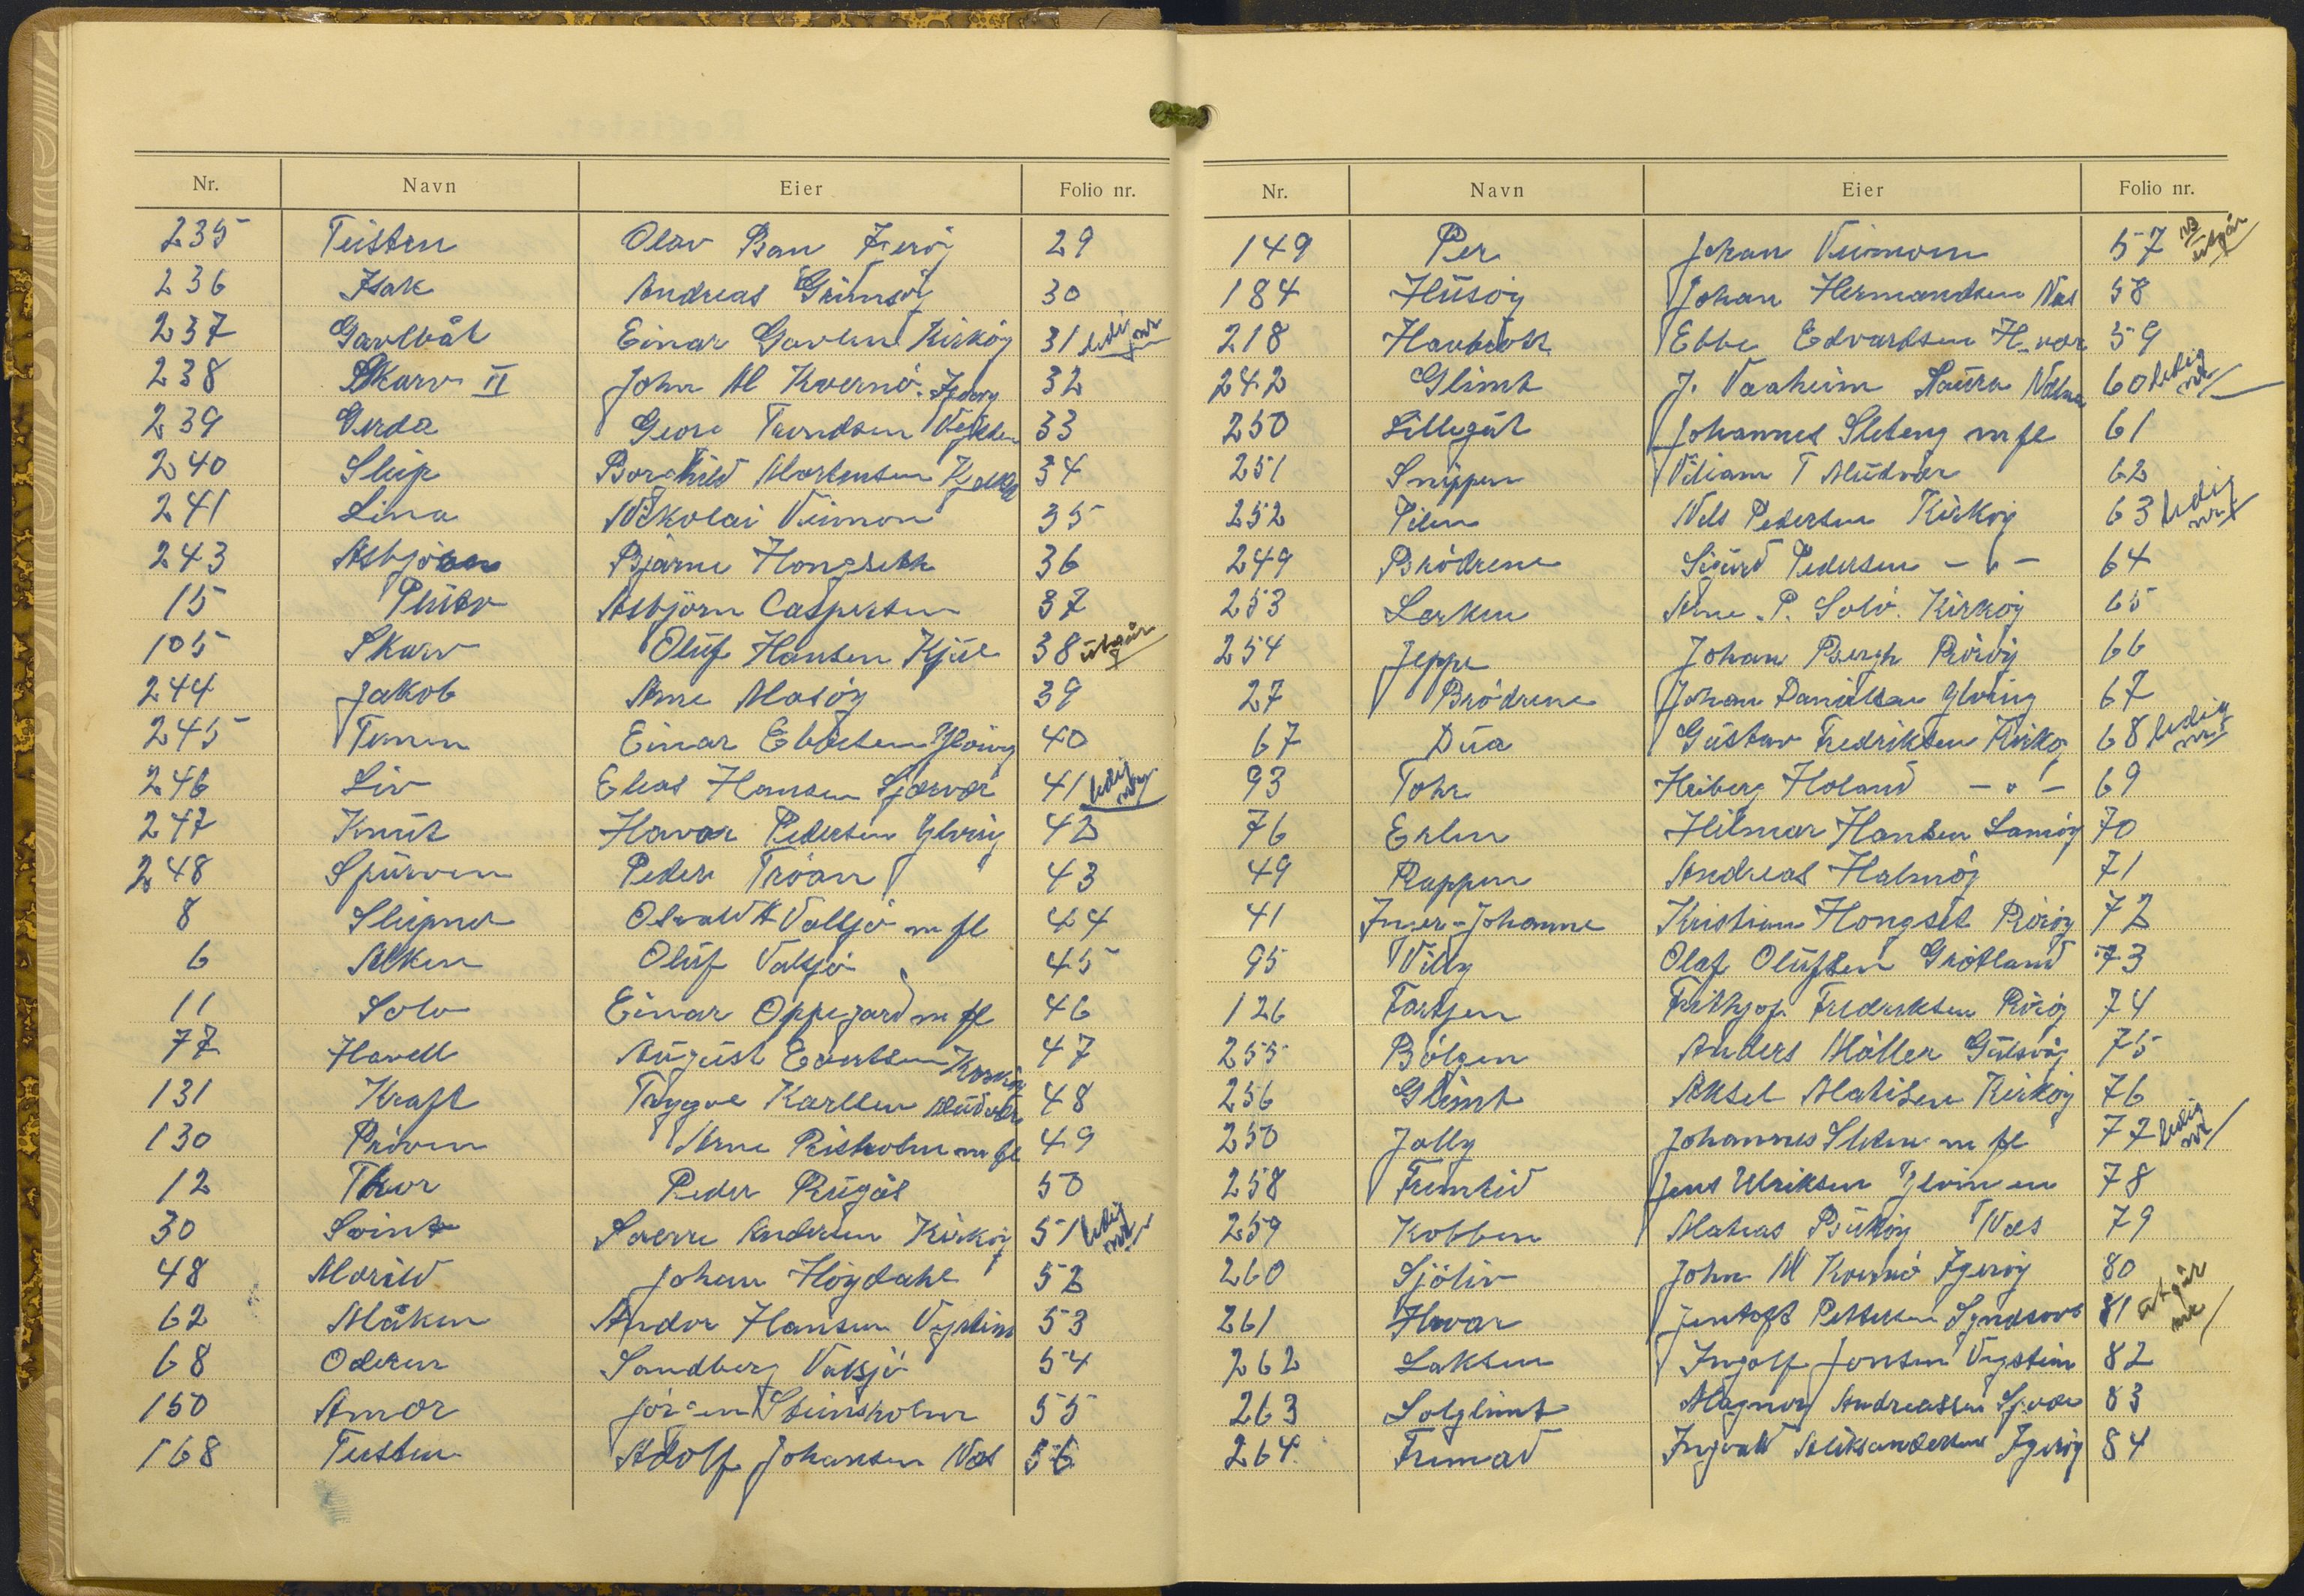 Nr. Navn Eier Folio nr.
235 Teisten Olav Ban 29
236 Isak Andreas Grimsöy 30
237 Gavlbåt Einar Gavlen Kirköy 31 ledig nr
238 Skarv II John M Kvernö 32
239 Gerda Georg Trondsen 33
240 Sleip Borghild Mortensen 34
241 Lina Nikolai Veimon 35
243 Asbjörn Bjarne Hongseth 36
15 Pluto Asbjörn Caspersen 37
105 Skarv Oluf Hansen 38 utgår
244 Jakob Arne Masöy 39
245 Ternen Einar Ebbesen Ylving 40
246 Liv Elias Hansen Sjærvær 41 ledig nr
247 Knut Havar Pedersen Ylving 42
248 Spurven Peder Tröan 43
8 Sleipner Osvald Valsjö m fl 44
6 Alken Oluf Valsjö 45
11 Solv Einar Oppegard m fl 46
77 Havell August Evertsen 47
131 Kraft Trygve Karlsen 48
130 Pröven Arne Risholm m fl 49
12 Thor Peder Rugås 50
30 Svint Sverre Andersen Kirköy 51 ledig nr
48 Marild Johan Högdahl 52
62 Måken Andor Hansen Vegstein 53
68 Oderen Sandberg Valsjö 54
150 Amor Jörgen Steinsholm 55
168 Teisten Adolf Johansen Væs 56
Nr. Navn Eier Folio nr.
149 Per Johan Veimon 57 nr utgår
184 Husöy Johan Hermandsen 58
218 Havbrott Ebbe Edvardsen 59
242 Glimt J. Vaaheim 60 ledig nr
250 Lillegut Johannes Sleteng m fl 61
251 Snippen Viliam T Mudvær 62
252 Pilen Nils Pedersen Kirköy 63 ledig nr
249 Brödrene Sigurd Pedersen - " - 64
253 Lerken Arne P. Solö Kirköy 65
254 Jeppe Johan Bergh Röröy 66
27 Brödrene Johan Danielsen Ylving 67
67 Dua Gustav Fredriksen Kirköy 68 ledig nr
93 Tohr Heiberg Holand - " - 69
76 Erlen Hilmar Hansen Lamöy 70
49 Rappen Andreas Halmöy 71
41 Inger-Johanne Kristian Hongset Röröy 72
95 Villy Olaf Olufsen Grötland 73
126 Fartjen Frithjof Fredriksen Röröy 74
255 Bölgen Anders Möller Gulsvåg 75
256 Glimt Aksel Matisen Kirköy 76
250 Jolly Johannes Sleteng m fl 77 ledig nr
258 Fremtid Jens Ulriksen 78
259 Kobben Matias Buköy 79
260 Sjöliv John M Kvernö Igeröy 80
261 Havar Jentoft Pettersen 81 utgår nr
262 Laksen Ingolf Jensen Vegstein 82
263 Solglimt Magnor Andreassen 83
264 Fremad Ingvald Aleksandersen Igeröy 84